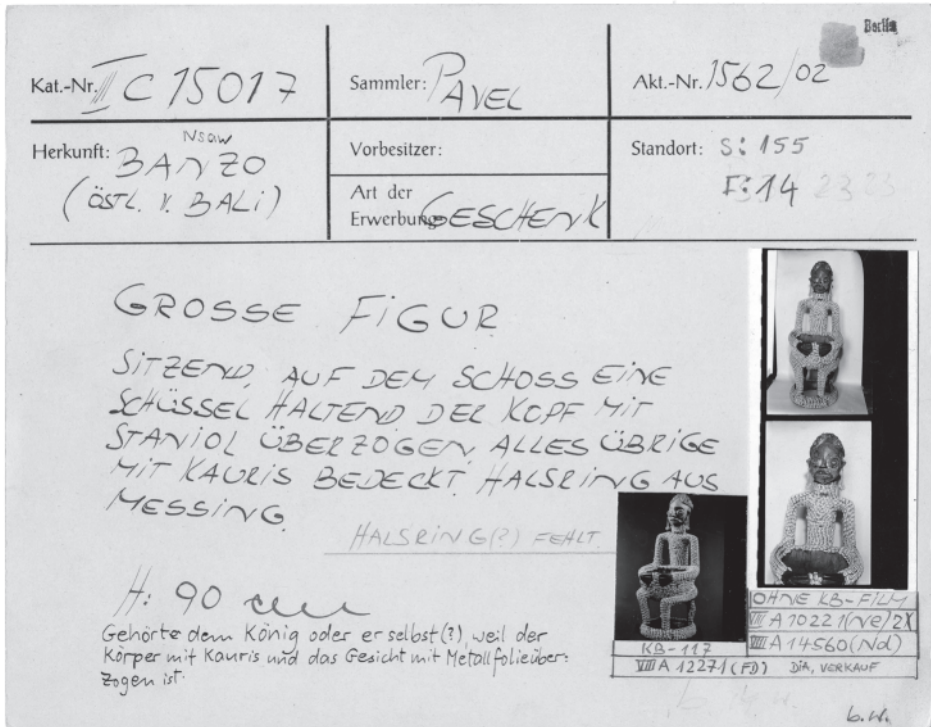 Berlin
Kat.-Nr. III C 15017
Sammler: PAVEL
Akt.-Nr. 1562/02
Herkunft: Nsaw
BANZO
(ÖSTL. V. BALI)
Vorbesitzer:
Art der
Erwerbung: GESCHENK
Standort: S: 155
F: 14 23 23
GROSSE FIGUR
SITZEND, AUF DEM SCHOSS EINE
SCHÜSSEL HALTEND. DER KOPF MIT
STANIOL ÜBERZOGEN, ALLES ÜBRIGE
MIT KAURIS BEDECKT. HALSRING AUS
MESSING.
HALSRING(?) FEHLT.
H: 90 cm
Gehörte dem König oder er selbst(?), weil der
Körper mit Kauris und das Gesicht mit Metallfolie über:
zogen ist.
KB-117
VIII A 12271 (FD)
OHNE KB-FILM
VIII A 10221 (Ne) 2X
VIII A 14560 (Nd)
DIA, VERKAUF
b.w.